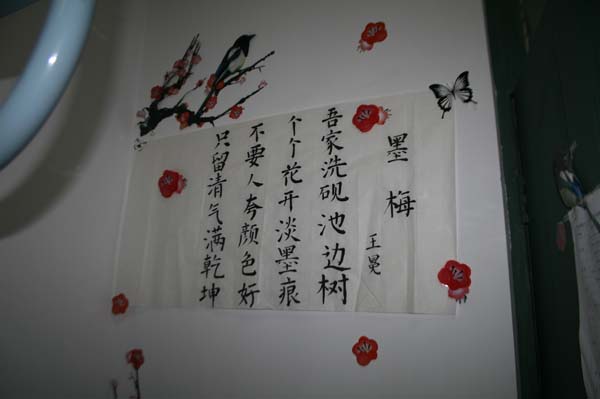 墨梅
王冕
吾家洗砚池边树
个个花开淡墨痕
不要人夸颜色好
只留清气满乾坤